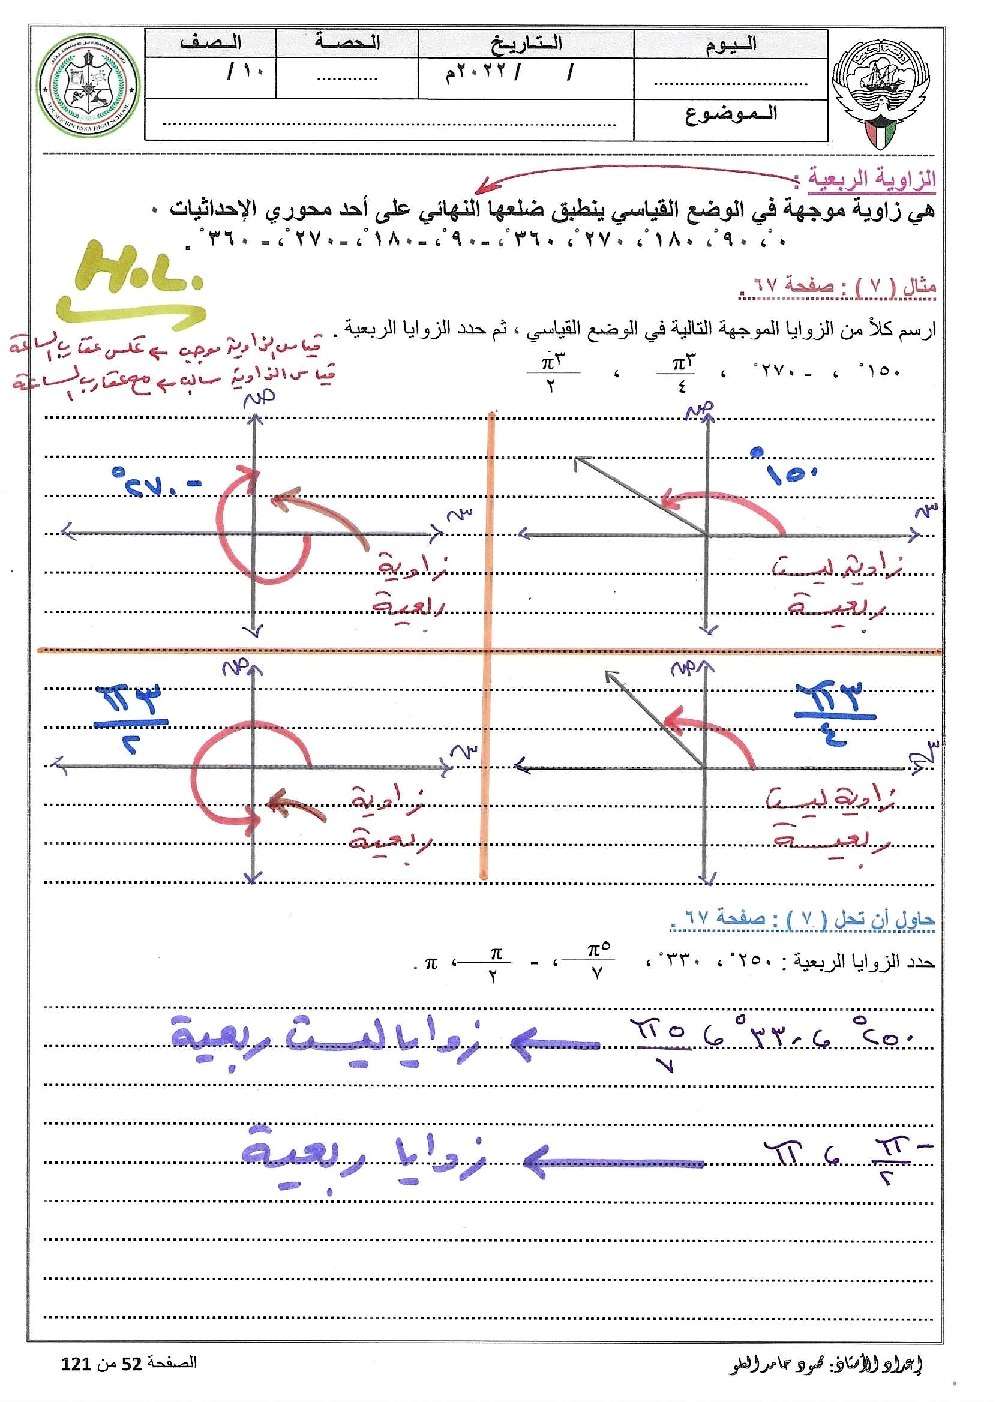 اليوم
التاريخ
الحصة
الصف
..................
/ / ٢٠٢٢م
...........
١٠ /
الموضوع
الزاوية الربعية :
هي زاوية موجهة في الوضع القياسي ينطبق ضلعها النهائي على أحد محوري الإحداثيات ٠
٠°، ٩٠°، ١٨٠°، ٢٧٠°، ٣٦٠°، -٩٠°، -١٨٠°، -٢٧٠°، -٣٦٠° .
H.L.
مثال ( ٧ ) : صفحة ٦٧ .
ارسم كلاً من الزوايا الموجهة التالية في الوضع القياسي ، ثم حدد الزوايا الربعية .
قياس الزاوية موجب ← عكس عقارب الساعة
قياس الزاوية سالب ← مع عقارب الساعة
١٥٠° ، -٢٧٠° ، ٣π/٤ ، ٣π/٢
ص
س
١٥٠°
زاوية ليست
ربعية
ص
س
-٢٧٠°
زاوية
ربعية
ص
س
٣π/٤
زاوية ليست
ربعية
ص
س
٣π/٢
زاوية
ربعية
حاول أن تحل ( ٧ ) : صفحة ٦٧ .
حدد الزوايا الربعية : ٢٥٠° ، ٣٣٠° ، ٥π/٧ ، -π/٢ ، π .
٢٥٠° ، ٣٣٠° ، ٥π/٧ ← زوايا ليست ربعية
-π/٢ ، π ← زوايا ربعية
إعداد الأستاذ: محمود حامد الطو
الصفحة 52 من 121